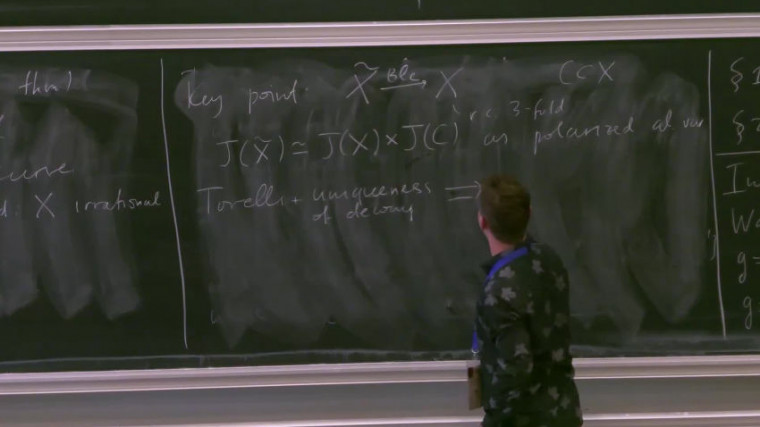 thm)
curve
X irrational
Key point: X̃ Bl_C → X C ⊂ X
r.c. 3-fold
J(X̃) ≃ J(X) × J(C) as polarized ab var
Torelli + uniqueness ⇒
of decomp
§
§
In
g =
g